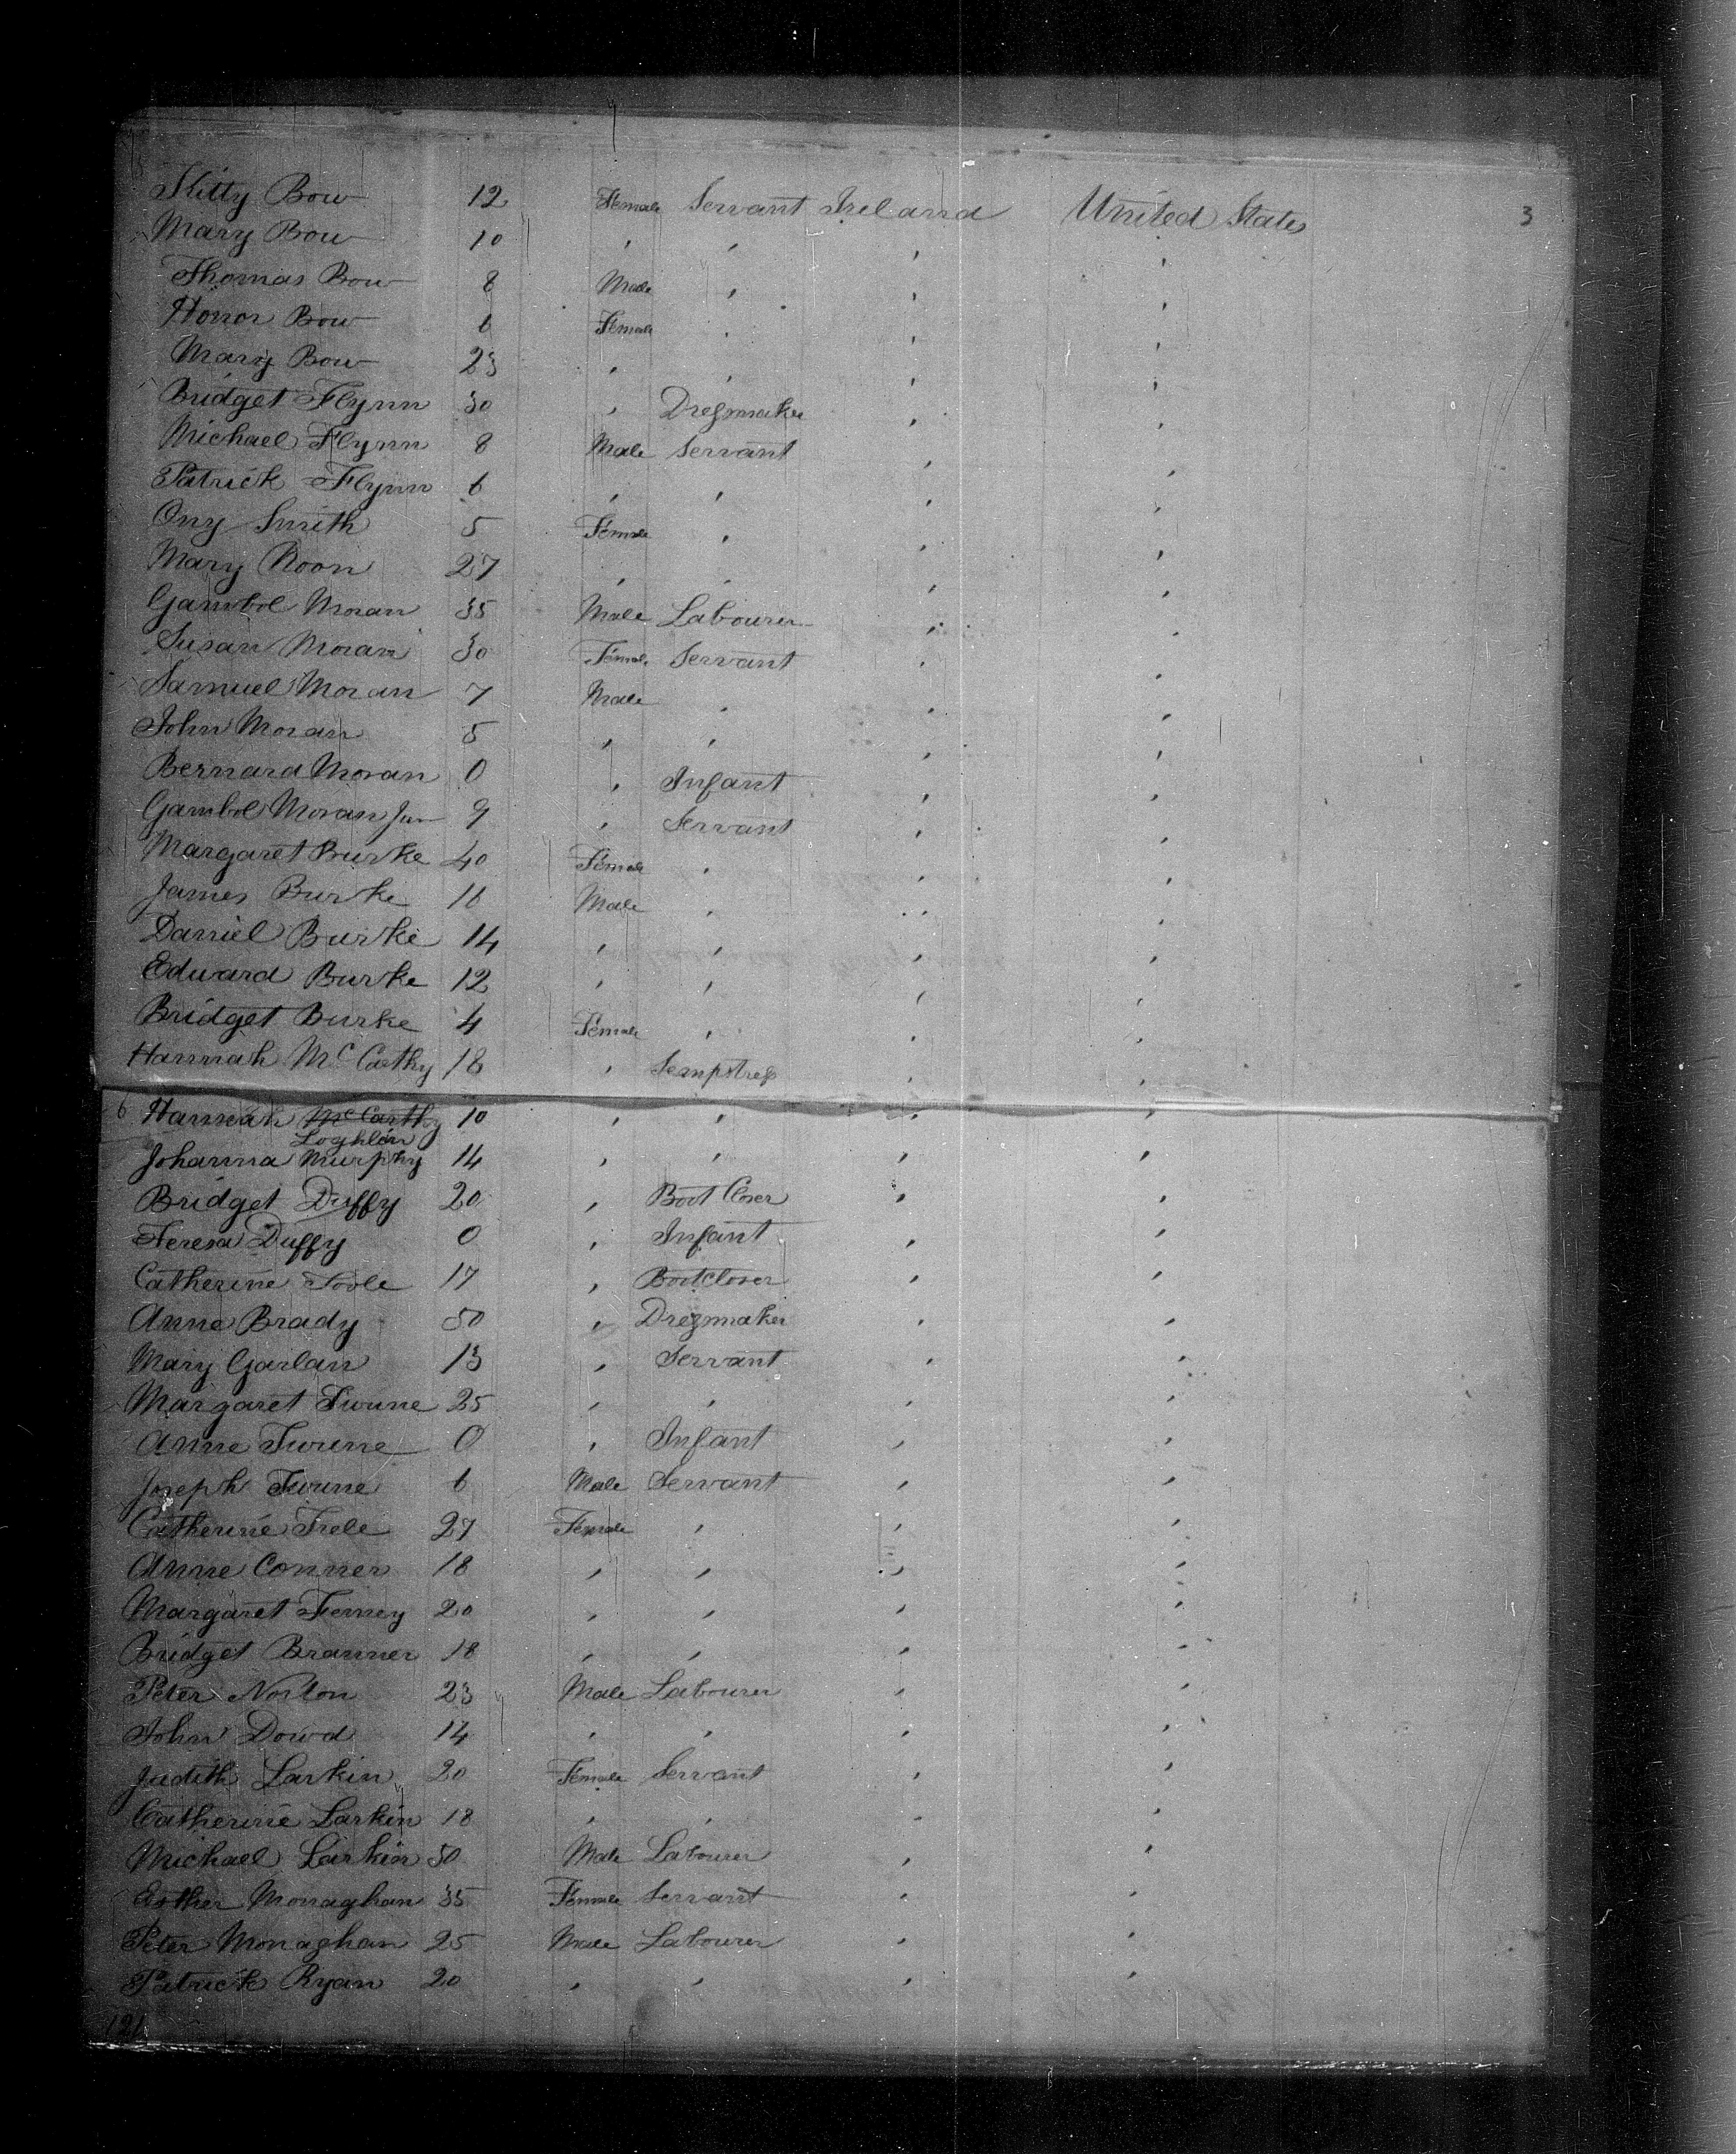 Kitty Bow 12 Female Servant Ireland United States 3
Mary Bow 10 " " " "
Thomas Bow 8 Male " " "
Honor Bow 6 Female " " "
Mary Bow 23 " " " "
Bridget Flynn 30 " Dressmaker " "
Michael Flynn 8 Male Servant " "
Patrick Flynn 6 " " " "
Ony Smith 5 Female " " "
Mary Noon 27 " " " "
Gambol Moran 35 Male Labourer " "
Susan Moran 30 Female Servant " "
Samuel Moran 7 Male " " "
John Moran 5 " " " "
Bernard Moran 0 " Infant " "
Gambol Moran Jun 9 " Servant " "
Margaret Burke 40 Female " " "
James Burke 16 Male " " "
Daniel Burke 14 " " " "
Edward Burke 12 " " " "
Bridget Burke 4 Female " " "
Hannah Mc Carthy 18 " Sempstress " "
6 Hannah Mc Carthy 10 " " " "
Loghlen
Johanna Murphy 14 " " " "
Bridget Duffy 20 " Boot Closer " "
Teresa Duffy 0 " Infant " "
Catherine Toole 17 " Bootcloser " "
Anne Brady 50 " Dressmaker " "
Mary Garlan 13 " Servant " "
Margaret Swine 25 " " " "
Anne Swine 0 " Infant " "
Joseph Swine 6 Male Servant " "
Catherine Frele 27 Female " " "
Anne Conner 18 " " " "
Margaret Feeney 20 " " " "
Bridget Branner 18 " " " "
Peter Norton 23 Male Labourer " "
John Dowd 14 " " " "
Judith Larkin 20 Female Servant " "
Catherine Larkin 18 " " " "
Michael Larkin 50 Male Labourer " "
Esther Monaghan 35 Female Servant " "
Peter Monaghan 25 Male Labourer " "
Patrick Ryan 20 " " " "